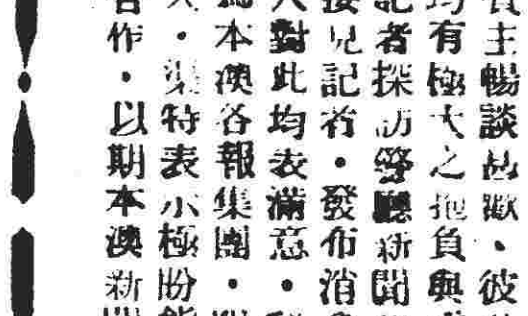 主暢談甚歡、彼
均有極大之抱負與
記者探訪警廳新聞
接見記者・發布消
人對此均表滿意・
為本澳各報集團・
・渠特表示極盼能
合作・以期本澳新聞